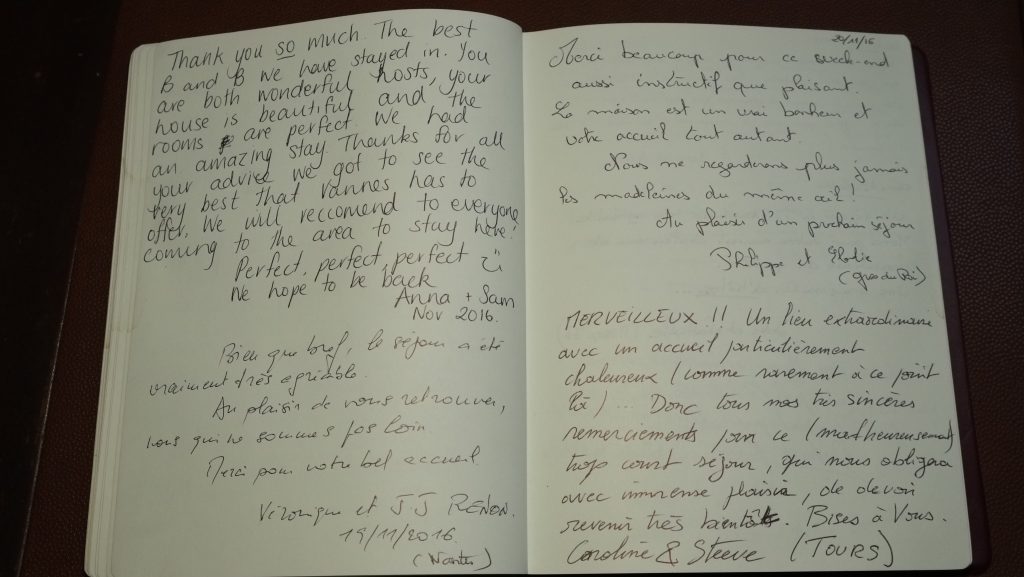 Thank you so much. The best
B and B we have stayed in. You
are both wonderful hosts, your
house is beautiful and the
rooms are perfect. We had
an amazing stay Thanks for all
your advice we got to see the
very best that Vannes has to
offer. We will reccomend to everyone
coming to the area to stay here!
Perfect, perfect, perfect
We hope to be back
Anna + Sam
Nov 2016.
Bien que bref, le séjour a été
vraiment très agréable.
Au plaisir de vous retrouver,
nous qui ne sommes pas loin.
Merci pour votre bel accueil.
Véronique et JJ RENON.
19/11/2016.
(Nantes)
20/11/16
Merci beaucoup pour ce week-end
aussi instructif que plaisant.
La maison est un vrai bonheur et
votre accueil tout autant.
Nous ne regarderons plus jamais
les madeleines du même œil!
Au plaisir d'un prochain séjour
Philippe et Elodie
MERVEILLEUX !! Un lieu extraordinaire
avec un accueil particulièrement
chaleureux (comme rarement à ce point
là)... Donc tous nos très sincères
remerciements pour ce (malheureusement)
trop court séjour, qui nous obligera
avec immense plaisir, de devoir
revenir très bientôt. Bises à Vous.
Caroline & Steeve (TOURS)